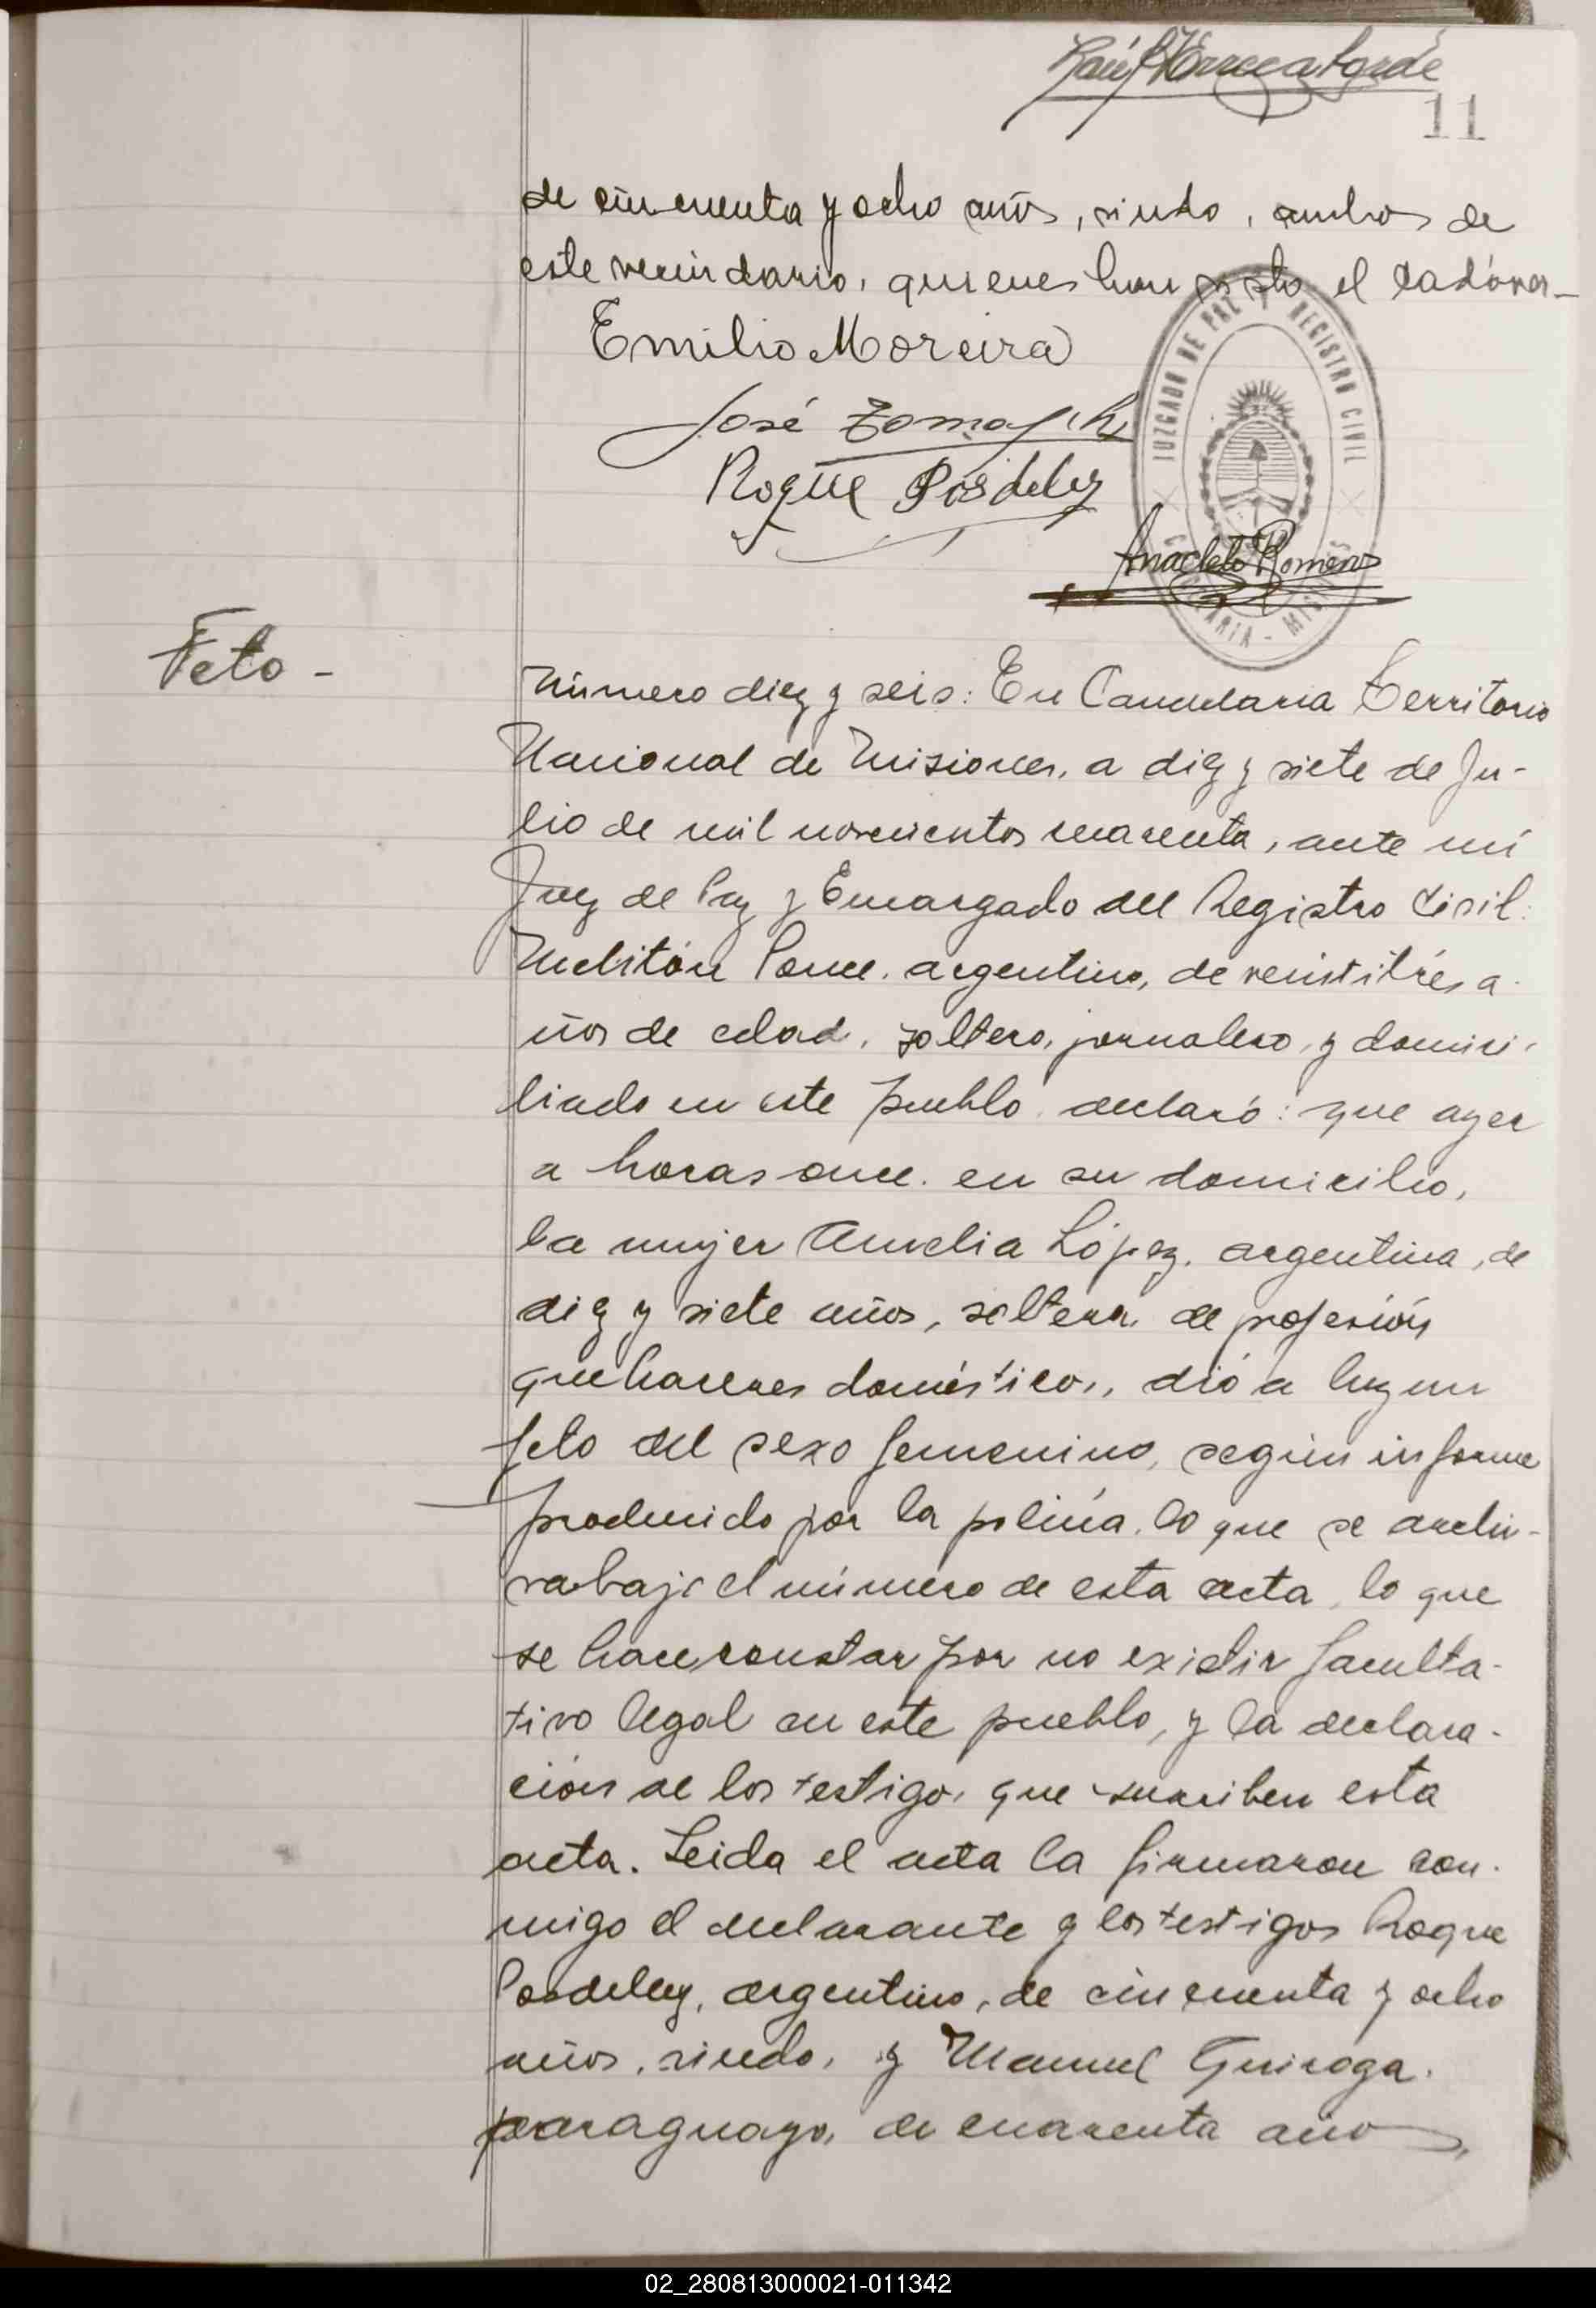 11
de cincuenta y ocho años, viudo, ambos de
este vecindario, quienes han visto el cadáver_
Emilio Moreira
José
Roque Posdeley
JUZGADO DE PAZ Y REGISTRO CIVIL
Anacleto Romero
Feto -
Número diez y seis: En Candelaria Territorio
Nacional de Misiones, a diez y siete de Ju-
lio de mil novecientos cuarenta, ante mí
Juez de Paz y Encargado del Registro Civil:
Melitón Ponce, argentino, de veintitrés a-
ños de edad, soltero, jornalero, y domici-
liado en este pueblo declaró: que ayer
a horas once, en su domicilio,
la mujer Aurelia López, argentina, de
diez y siete años, soltera, de profesión
quehaceres domésticos, dió a luz un
feto del sexo femenino, según informe
producido por la policía, lo que se archi-
va bajo el número de esta acta, lo que
se hace constar por no existir faculta-
tivo legal en este pueblo, y la declara-
ción de los testigos que suscriben esta
acta. Leida el acta la firmaron con-
migo el declarante y los testigos Roque
Posdeley, argentino, de cincuenta y ocho
años, viudo, y Manuel Quiroga,
paraguayo, de cuarenta años,
02_280813000021-011342